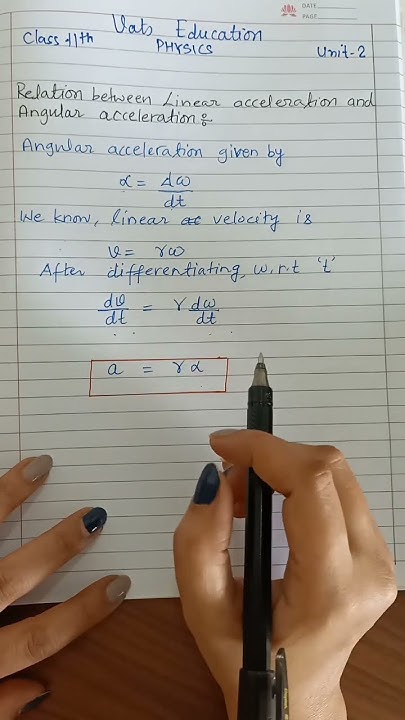 DATE
PAGE
Vats Education
Class 11th PHYSICS Unit-2
Relation between Linear acceleration and
Angular acceleration :
Angular acceleration given by
α = dω/dt
We know, linear velocity is
v = rω
After differentiating, w.r.t 't'
dv/dt = r dω/dt
a = rα